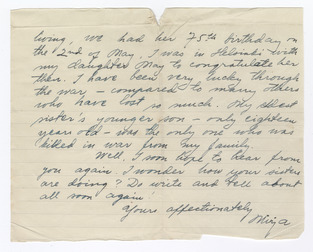 living, we had her 75th birthday on
the 2nd of May, I was in Helsinki with
my daughter May to congratulate her
then. I have been very lucky through
the war – compared to many others
who have lost so much. My eldest
sister's younger son – only eighteen
years old – was the only one who was
killed in war from my family.
Well, I soon hope to hear from
you again. I wonder how your sisters
are doing? Do write and tell about
all soon again
Yours affectionately
Mirja